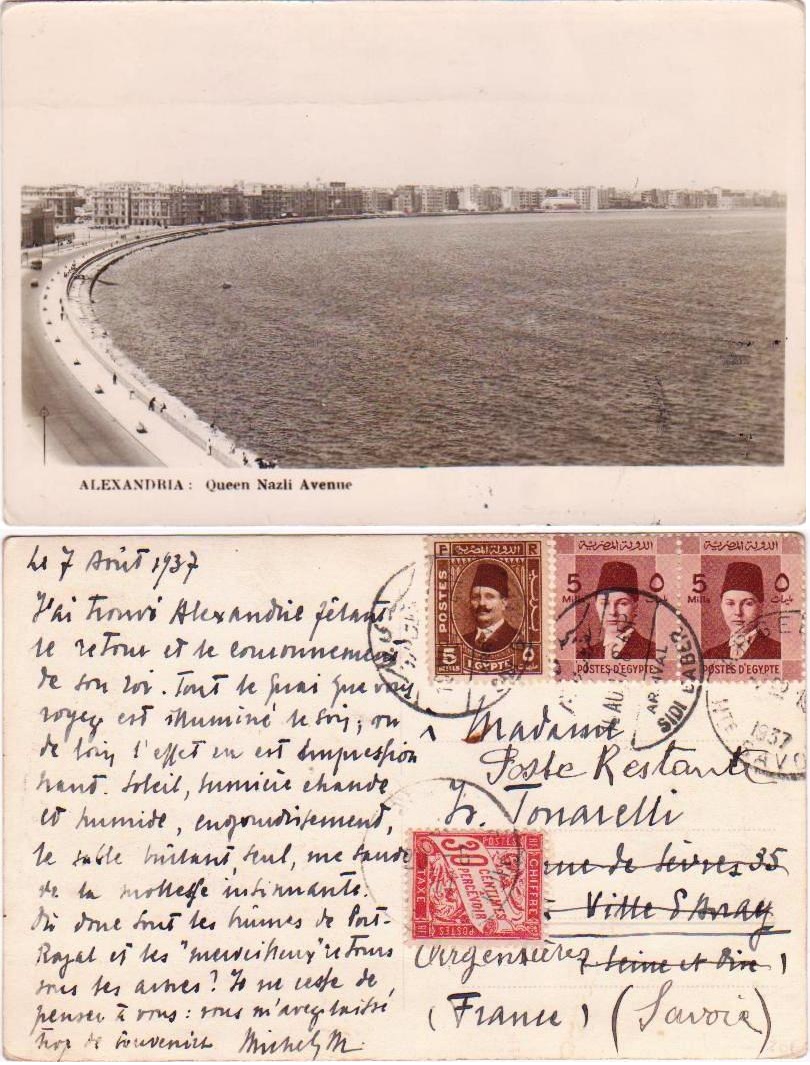 ALEXANDRIA : Queen Nazli Avenue
Le 7 Août 1937
J'ai trouvé Alexandrie fêtant
le retour et le couronnement
de son roi. Tout le quai que vous
voyez est illuminé le soir, vu
de loin l'effet en est impression
nant. Soleil, lumière chaude
et humide, engourdissement,
le sable brûlant, seul, me sauve
de la mollesse insinuante.
Où donc sont les brumes de Port-
Royal et les "merveilleux" retours
sous les arbres? Je ne cesse de
penser à vous : vous m'avez laissé
trop de souvenirs Michel M.
الدولة المصرية
POSTES
5
MILLIEMES
EGYPTE
٥
الدولة المصرية
5 ٥
Mills مليمات
POSTES D'EGYPTE
الدولة المصرية
5 ٥
Mills مليمات
POSTES D'EGYPTE
ARRIVAL
SIDI GABER
1937
HTE SAVOIE
Madame
Poste Restante
Tonarelli
rue de Sèvres 35
Ville d'Avray
Argentière (Seine et Oise)
(France) (Savoie)
POSTES
CHIFFRE
30
CENTIMES
A
PERCEVOIR
TAXE
POSTES